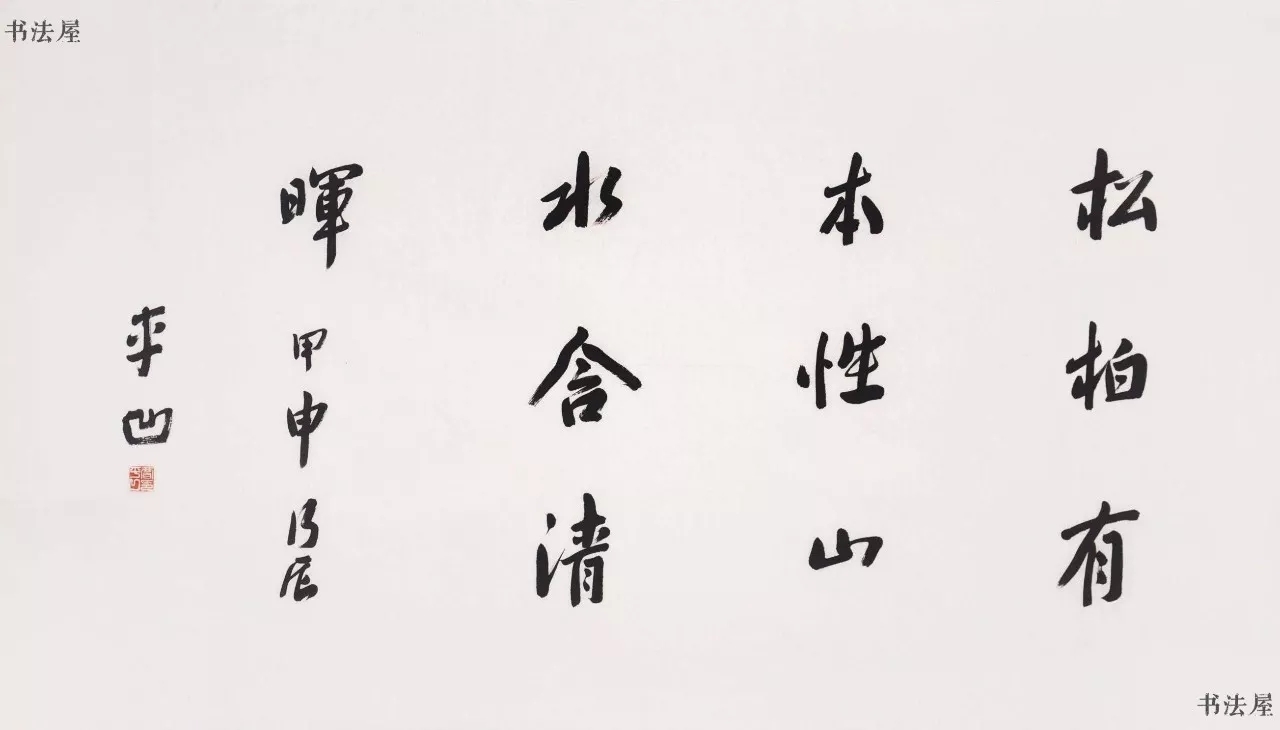 书法屋
松柏有
本性山
水含清
暉 甲申 辰
平凹
书法屋